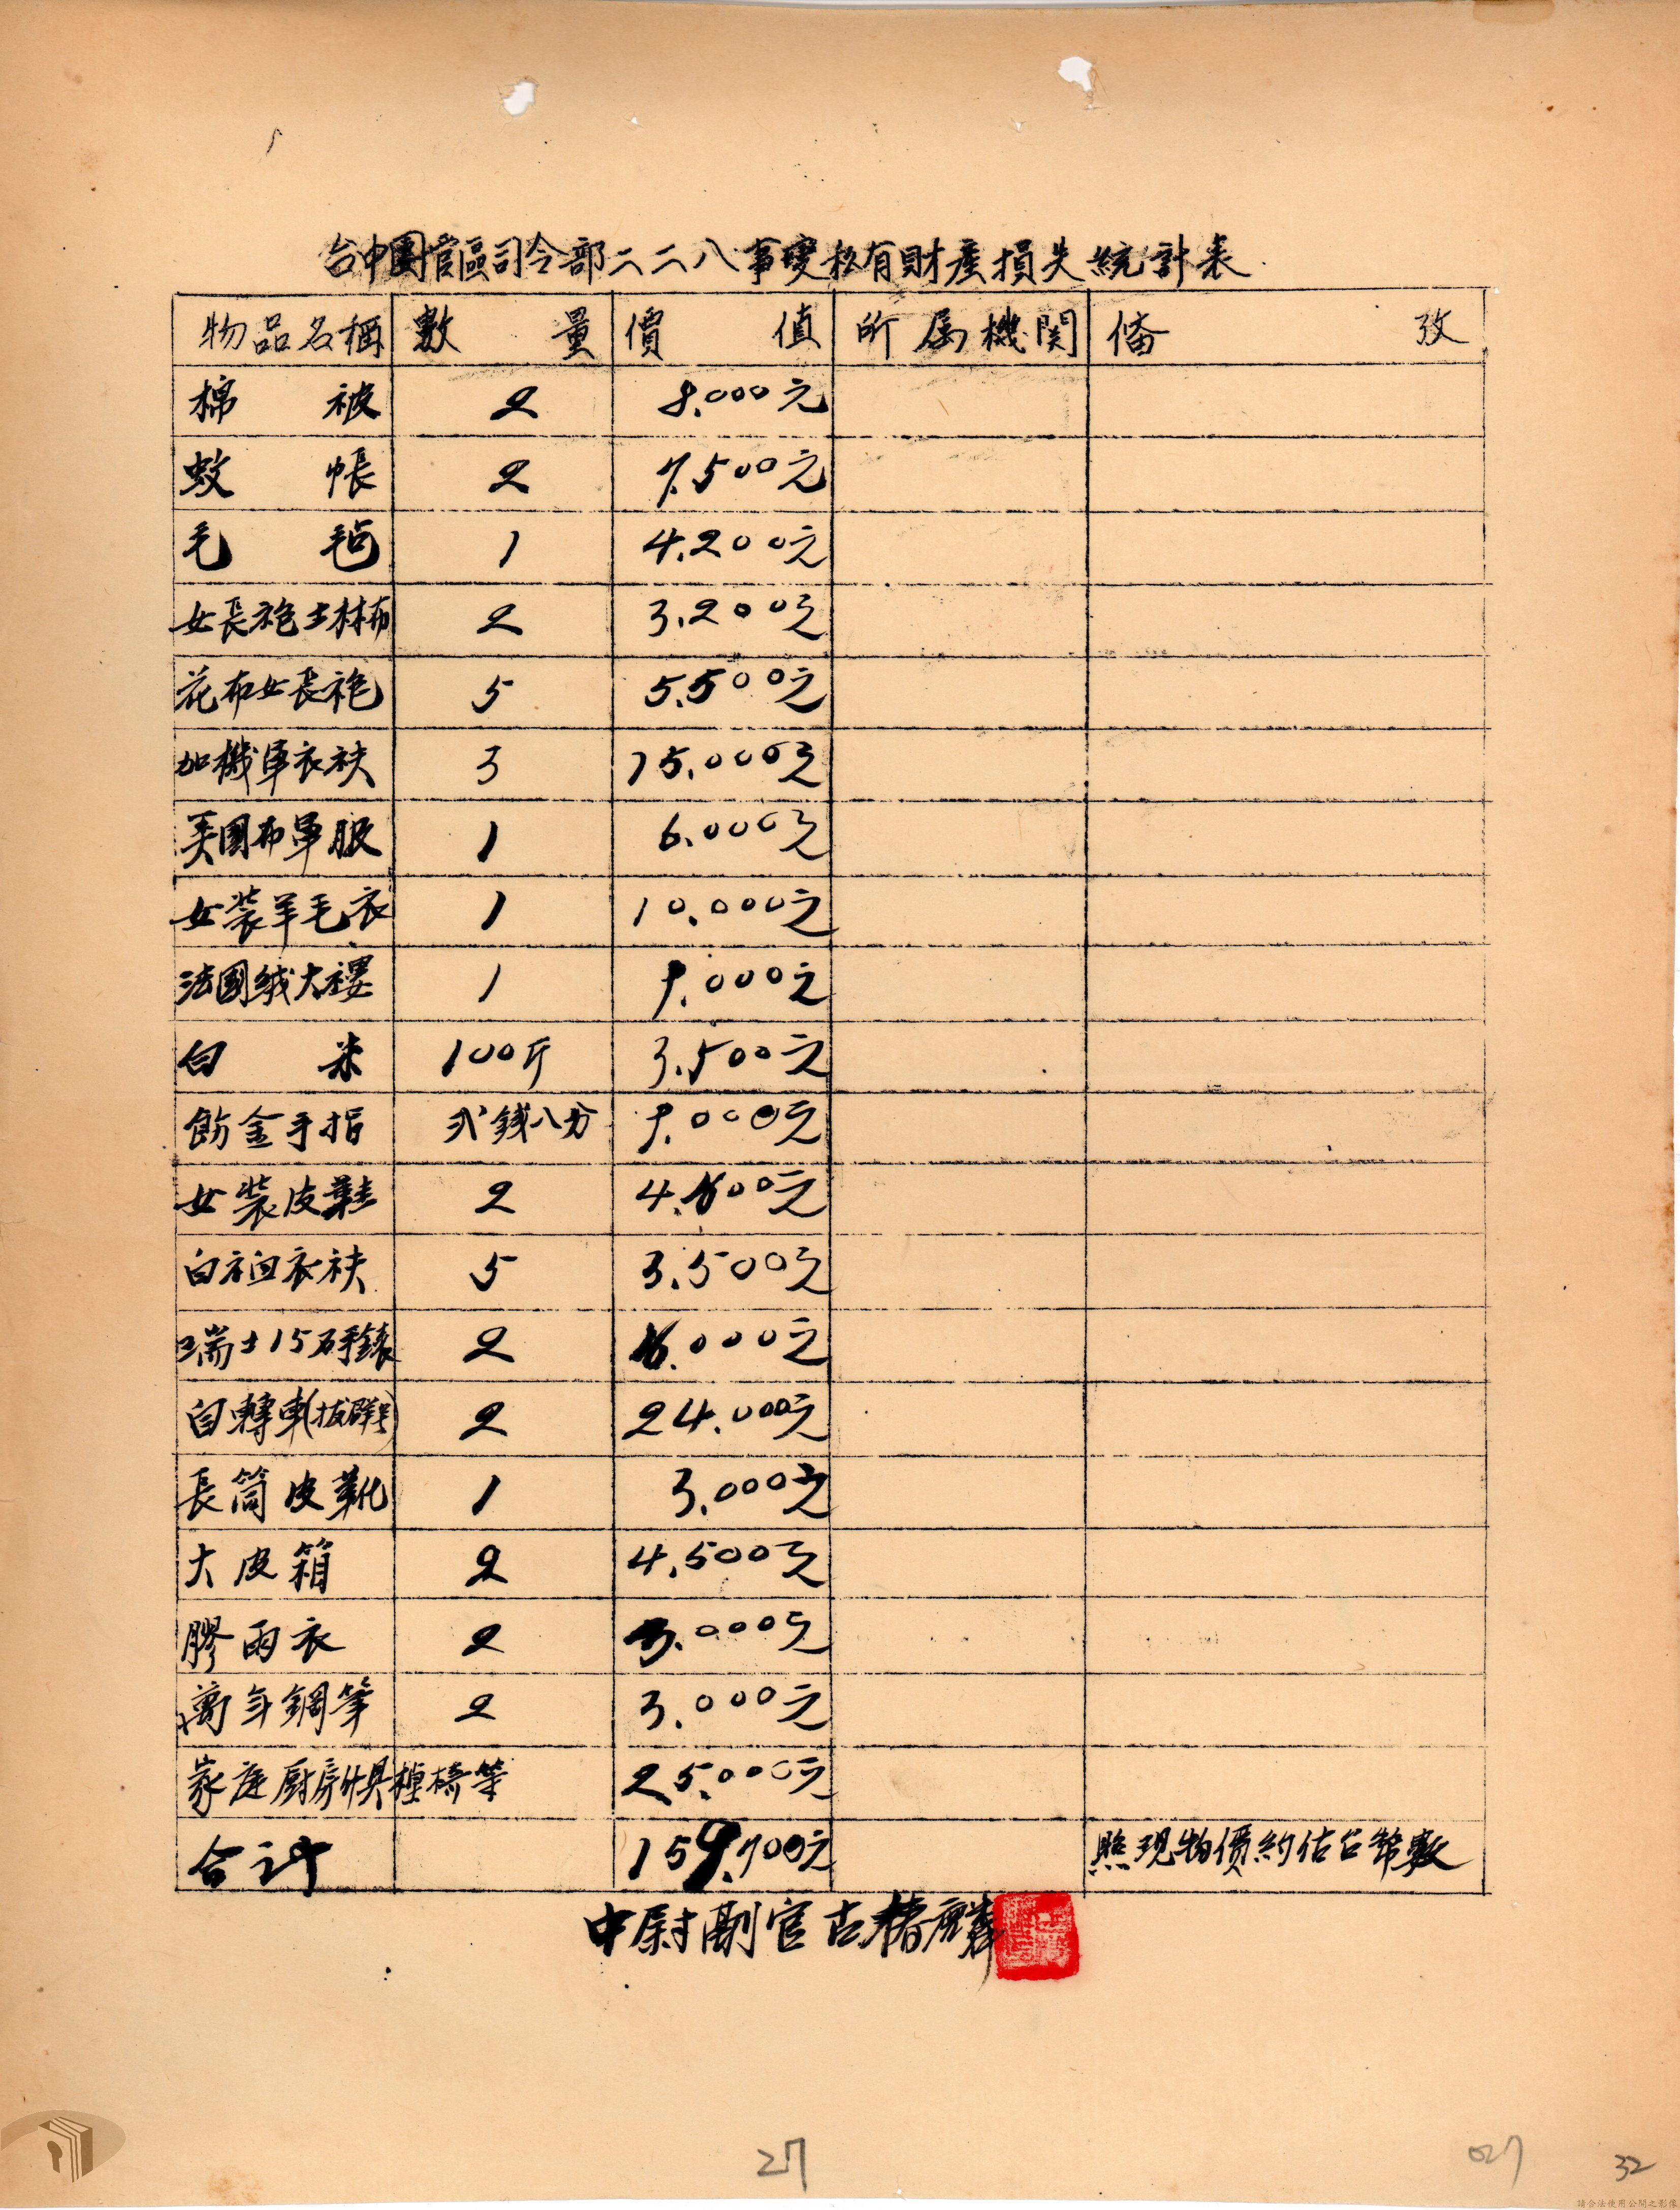 台中團管區司令部二二八事變私有財產損失統計表
物品名稱 數量 價值 所属機関 俻攷
棉被 2 8.000元
蚊帳 2 7.500元
毛毡 1 4.200元
女長袍士林布 2 3.200元
花布女長袍 5 5.500元
加機軍衣袂 3 15.000元
美國布軍服 1 6.000元
女裝羊毛衣 1 10.000元
法國絨大褸 1 9.000元
白米 100斤 3.500元
飾金手指 弍錢八分 9.000元
女裝皮鞋 2 4.800元
白袒衣袂 5 3.500元
瑞士15石手錶 2 16.000元
自轉車(拔群号) 2 24.000元
長筒皮靴 1 3.000元
大皮箱 2 4.500元
膠雨衣 2 3.000元
萬年鋼筆 2 3.000元
家庭厨房俱棹椅等 25.000元
合計 159.700元 照現物價約估台幣數
中尉副官古椿麟
27
027
32
請合法使用公開之影像